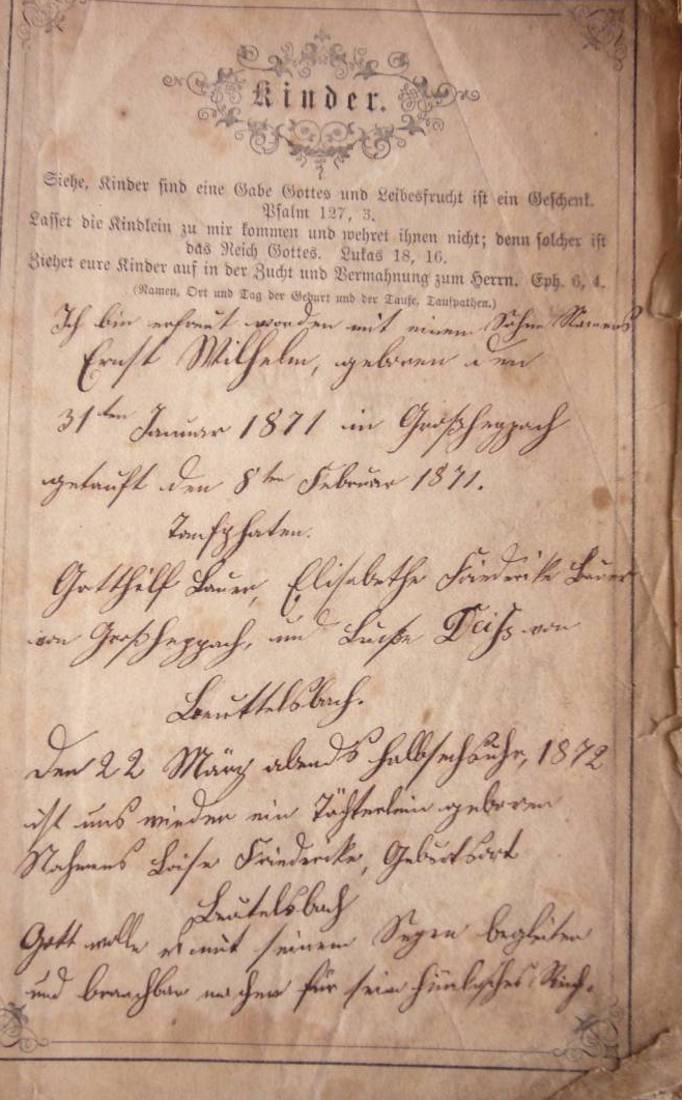 Kinder.
Siehe, Kinder sind eine Gabe Gottes und Leibesfrucht ist ein Geschenk.
Psalm 127, 3.
Lasset die Kindlein zu mir kommen und wehret ihnen nicht; denn solcher ist
das Reich Gottes. Lukas 18, 16.
Ziehet eure Kinder auf in der Zucht und Vermahnung zum Herrn. Eph. 6, 4.
(Namen, Ort und Tag der Geburt und der Taufe, Taufpathen.)
Ich bin erfreut worden mit einem Sohne Namens
Ernst Wilhelm, geboren den
31ten Januar 1871 in Großheppach
getauft den 8ten Februar 1871.
Taufphaten.
Gotthilf Bauer, Elisabethe Friederike Bauer
von Großheppach, und von
Beuttelsbach.
Den 22 März abends halbsechsuhr, 1872
ist uns wieder ein Töchterlein geboren
Nahmens Loise Friedericke, Geburtsort
Beutelsbach
Gott wolle es mit seinem Segen begleiten
und brauchbar machen für sein himlisches Reich.